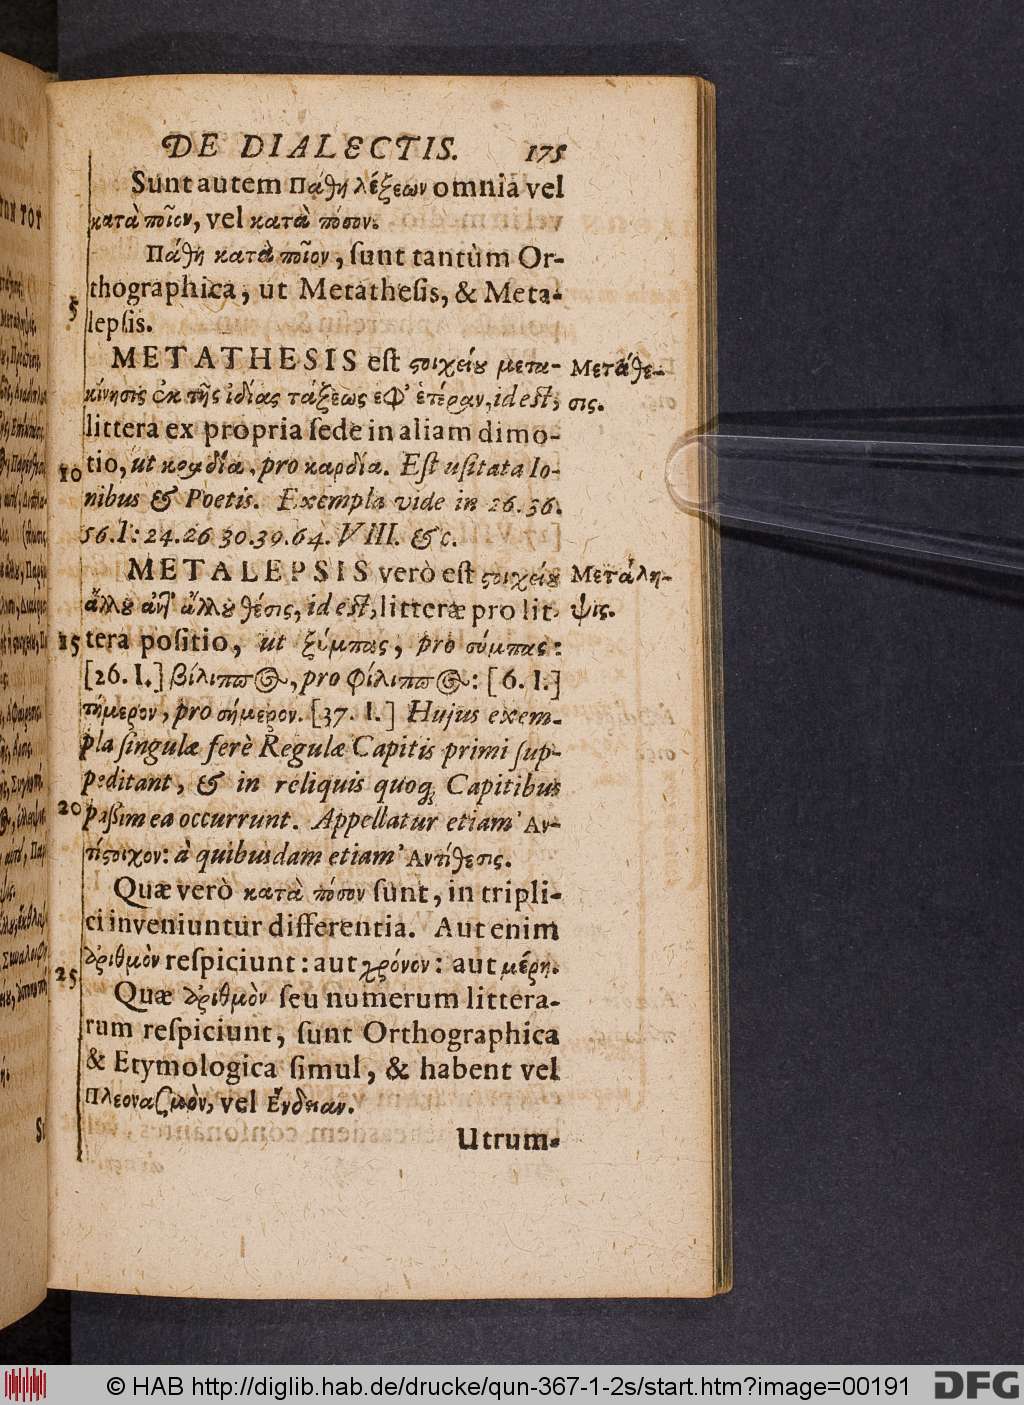 DE DIALECTIS. 175
Sunt autem Πάθη λέξεων omnia vel
κατὰ ποῖον, vel κατὰ πόσον.
Πάθη κατὰ ποῖον, ſunt tantùm Or-
thographica, ut Metatheſis, & Meta-
5
lepſis.
METATHESIS eſt ϛοιχείου μετα-
Μετάθε-
κίνησις ἐκ τῆς ἰδίας τάξεως εφ' ἑτέραν, id eſt,
σις.
littera ex propria ſede in aliam dimo-
10
tio, ut κραδία, pro καρδία. Eſt uſitata Io-
nibus & Poetis. Exempla vide in 26. 36.
56. I: 24. 26 30. 39. 64. VIII. &c.
METALEPSIS verò eſt ϛοιχείου
Μετάλη-
ἄλλου ἀντ' ἄλλου θέσις, id eſt, litteræ pro lit-
ψις.
15
tera poſitio, ut ξύμπας, pro σύμπας:
[26. I.] βίλιππος, pro φίλιππος: [6. I.]
τήμερον, pro σήμερον. [37. I.] Hujus exem-
pla ſingulæ ferè Regulæ Capitis primi ſup-
peditant, & in reliquis quoq; Capitibus
20
paſſim ea occurrunt. Appellatur etiam Ἀν-
τίϛοιχον: à quibusdam etiam Ἀντίθεσις.
Quæ verò κατὰ πόσον ſunt, in tripli-
ci inveniuntur differentia. Aut enim
ἀριθμὸν reſpiciunt: aut χρόνον: aut μέρη.
25
Quæ ἀριθμὸν ſeu numerum littera-
rum reſpiciunt, ſunt Orthographica
& Etymologica ſimul, & habent vel
Πλεοναζμὸν, vel Ἔνδειαν.
Utrum-
© HAB http://diglib.hab.de/drucke/qun-367-1-2s/start.htm?image=00191
DFG